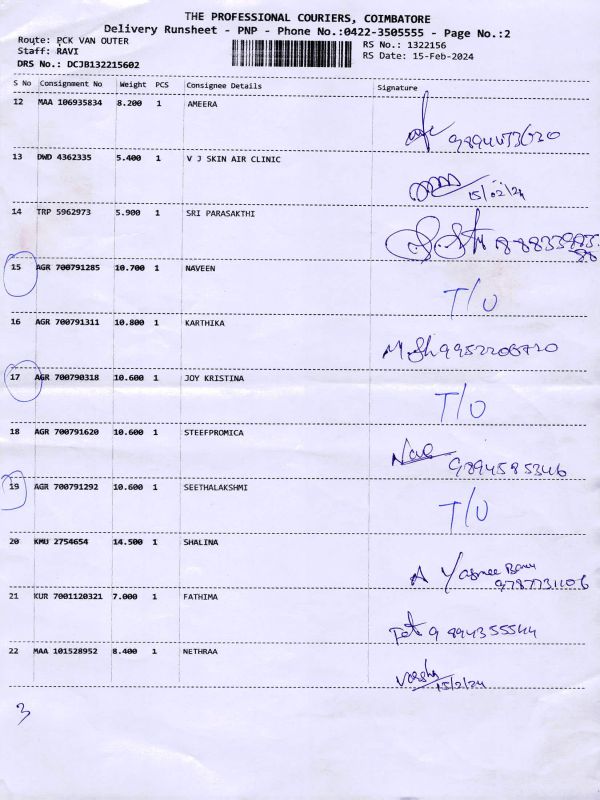 THE PROFESSIONAL COURIERS, COIMBATORE
Delivery Runsheet - PNP - Phone No.:0422-3505555 - Page No.:2
Route: PCK VAN OUTER
RS No.: 1322156
Staff: RAVI
RS Date: 15-Feb-2024
DRS No.: DCJB132215602
S No Consignment No Weight PCS Consignee Details Signature
12 MAA 106935834 8.200 1 AMEERA
13 DWD 4362335 5.400 1 V J SKIN AIR CLINIC
15/02/24
14 TRP 5962973 5.900 1 SRI PARASAKTHI
15 AGR 700791285 10.700 1 NAVEEN
T/U
16 AGR 700791311 10.800 1 KARTHIKA
17 AGR 700790318 10.600 1 JOY KRISTINA
T/U
18 AGR 700791620 10.600 1 STEEFPROMICA
9894585346
19 AGR 700791292 10.600 1 SEETHALAKSHMI
T/U
20 KMU 2754654 14.500 1 SHALINA
9787731106
21 KUR 7001120321 7.000 1 FATHIMA
9894355544
22 MAA 101528952 8.400 1 NETHRAA
15/2/24
3